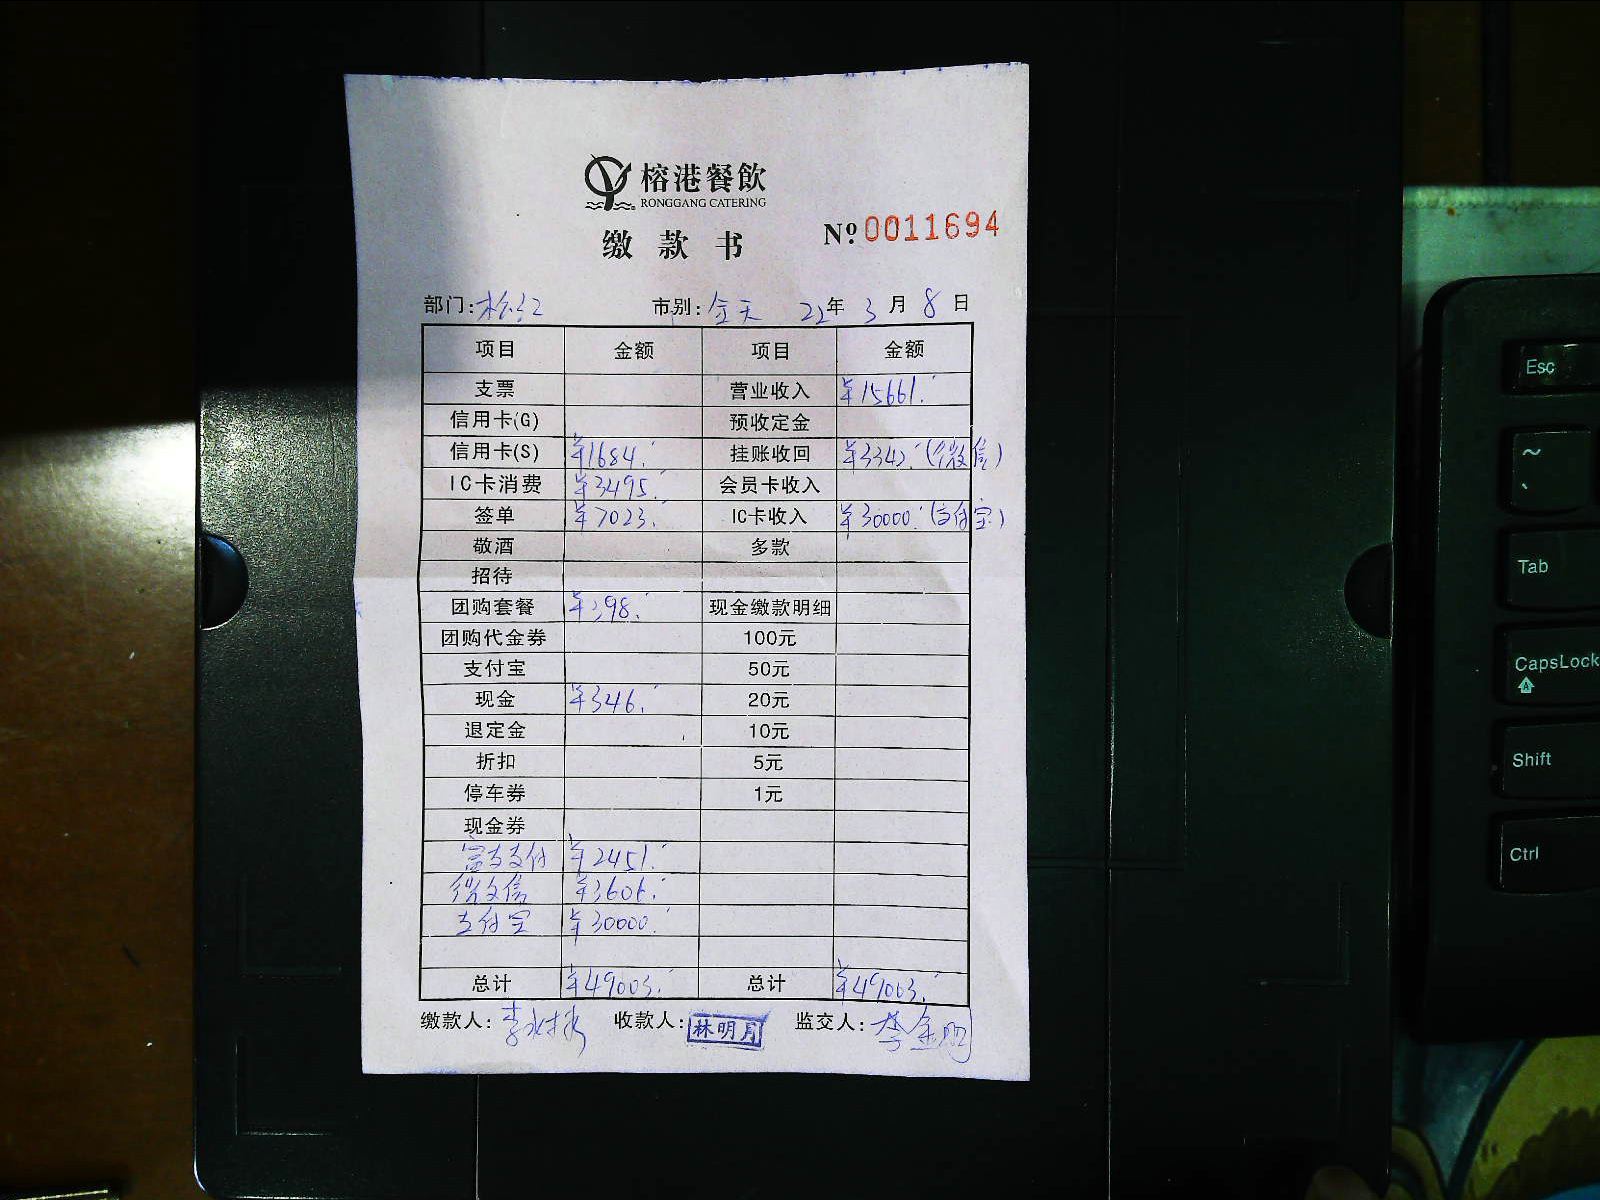 榕港餐飲
RONGGANG CATERING
缴款书
Nº 0011694
部门:松江 市别:全天 22年 3月 8日
项目 金额 项目 金额
支票 营业收入 ¥15661.
信用卡(G) 预收定金
信用卡(S) ¥1684. 挂账收回 ¥3342.(微信)
IC卡消费 ¥3495. 会员卡收入
签单 ¥7023. IC卡收入 ¥30000.(支付宝)
敬酒 多款
招待
团购套餐 ¥398. 现金缴款明细
团购代金券 100元
支付宝 50元
现金 ¥346. 20元
退定金 10元
折扣 5元
停车券 1元
现金券
富友支付 ¥2451.
微信 ¥3606.
支付宝 ¥30000.
总计 ¥49003. 总计 ¥49003.
缴款人: 收款人:林明月 监交人:李金明
Esc
~
Tab
CapsLock
A
Shift
Ctrl